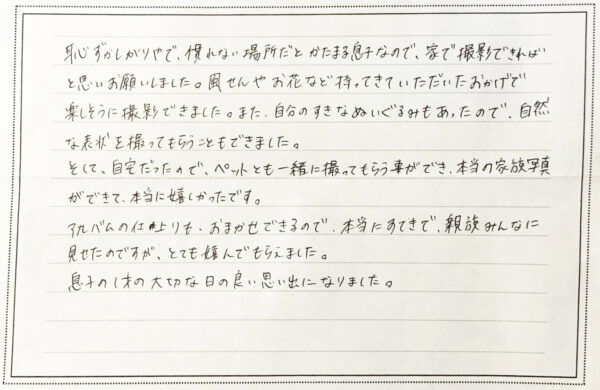 恥ずかしがりやで、慣れない場所だとかたまる息子なので、家で撮影できれば
と思いお願いしました。風せんやお花など持ってきていただいたおかげで
楽しそうに撮影できました。また、自分のすきなぬいぐるみもあったので、自然
な表状を撮ってもらうこともできました。
そして、自宅だったので、ペットとも一緒に撮ってもらう事ができ、本当の家族写真
ができて、本当に嬉しかったです。
アルバムの仕上りも、おまかせできるので、本当にすてきで、親族みんなに
見せたのですが、とても喜んでもらえました。
息子の1才の大切な日の良い思い出になりました。